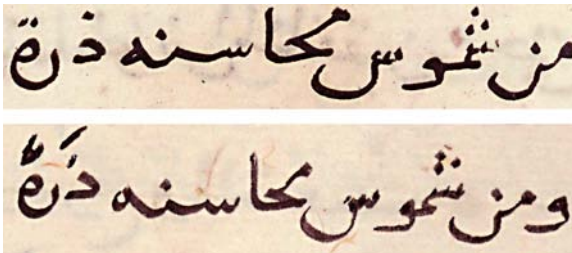 من شموس محاسنه ذرة
ومن شموس محاسنه ذَرةً